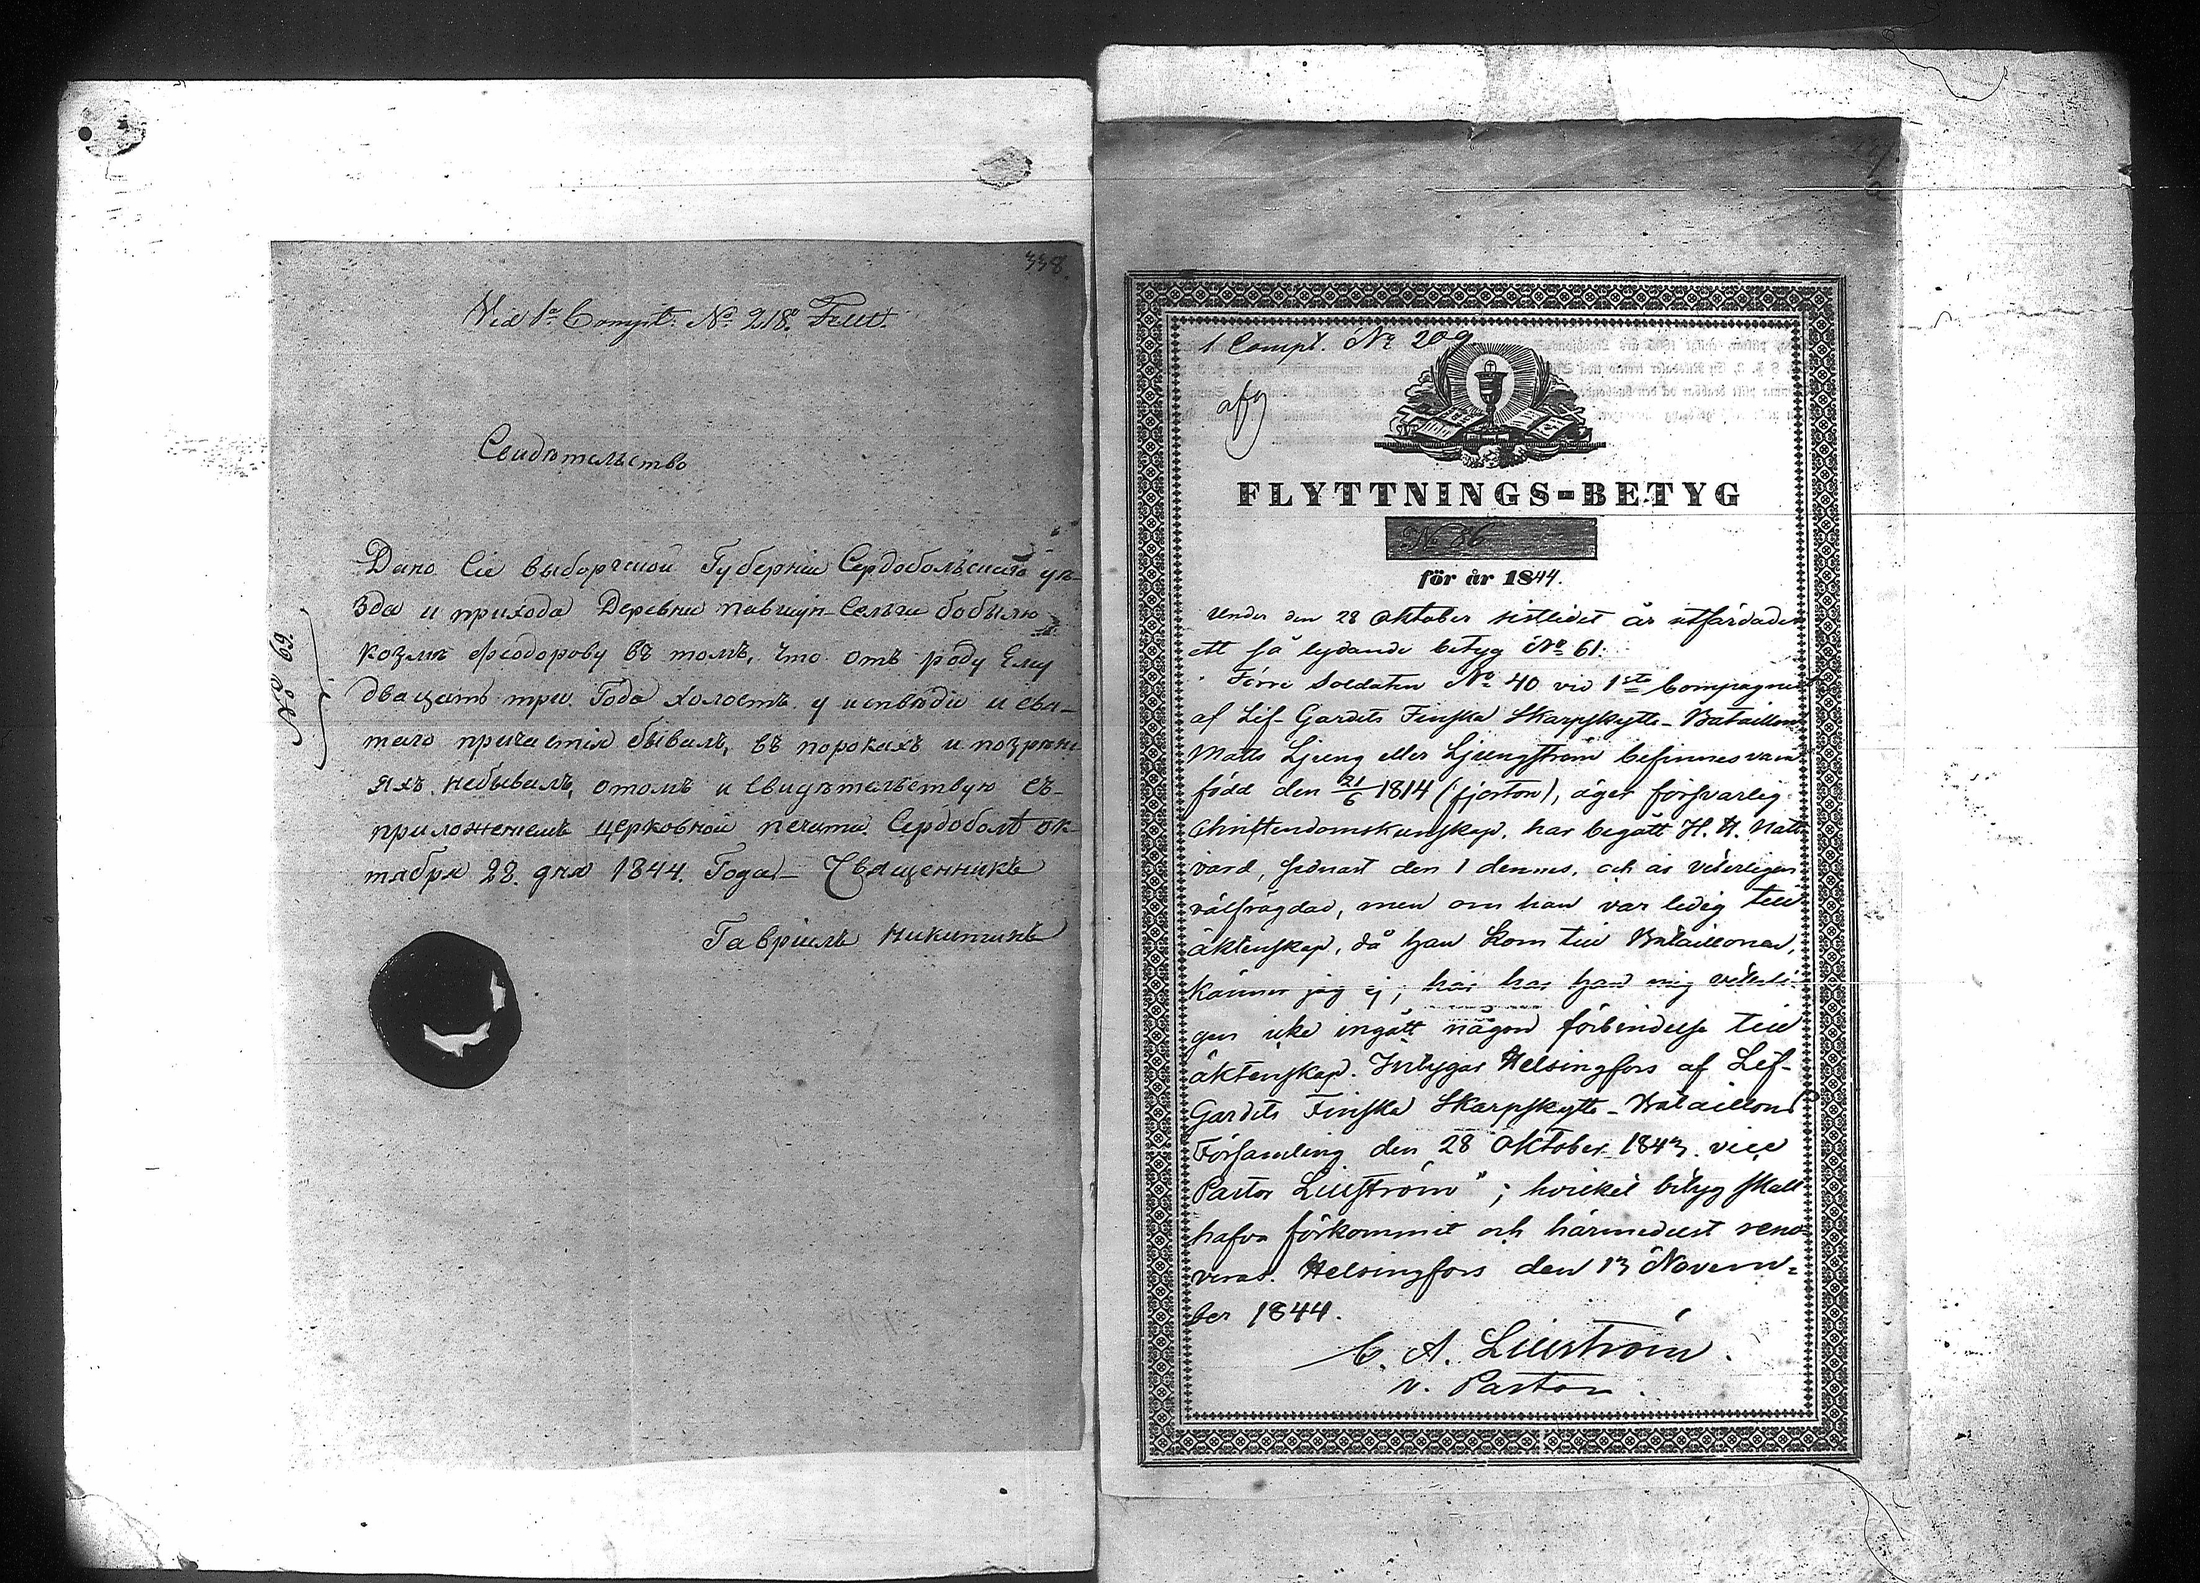 338.
Vid 1a Compt. No 218.
Свидѣтельство
Дано Сіе Выборгской Губерніи Сердобольскаго уѣ-
зда и прихода Деревни Бобылю
Козмѣ Феодорову въ томъ, что отъ роду Ему
двацать три Года холостъ у исповѣди и свя-
таго причастія бывалъ, въ порокахъ и подозрѣні-
яхъ небывалъ, отомъ и Свидѣтельствую съ-
приложеніемъ церковной печати Сердоболь ок-
тября 28. дня 1844. Года – Священникъ
Гавріилъ Никитинъ
No 69.
1 Compt. No 209
FLYTTNINGS-BETYG
No 86
för år 1844.
Under den 28 Oktober sistlidet år utfärdades
ett så lydande betyg No 61:
"Förre Soldaten No 40 vid 1sta Compagniet
af Lif-Gardets Finska Skarpskytte-Bataillon
Matts Ljung eller Ljungström befinnes vara
född den 21/6 1814 (fjorton), äger försvarlig
Christendomskunskap, har begått H. H. Natt-
vard, sednast den 1 dennes, och är veterligen
välfrägdad, men om han var ledig till
äktenskap, då han kom till Bataillonen,
känner jag ej; här har han mig veterli-
gen icke ingått någon förbindelse till
äktenskap. Intygar Helsingfors af Lif-
Gardets Finska Skarpskytte-Bataillons
Församling den 28 Oktober 1843. vice
Pastor Liliström"; hvilket betyg skall
hafva förkommit och härmedelst reno-
veras. Helsingfors den 13 Novem-
ber 1844.
C. A. Liliström.
v. Pastor.